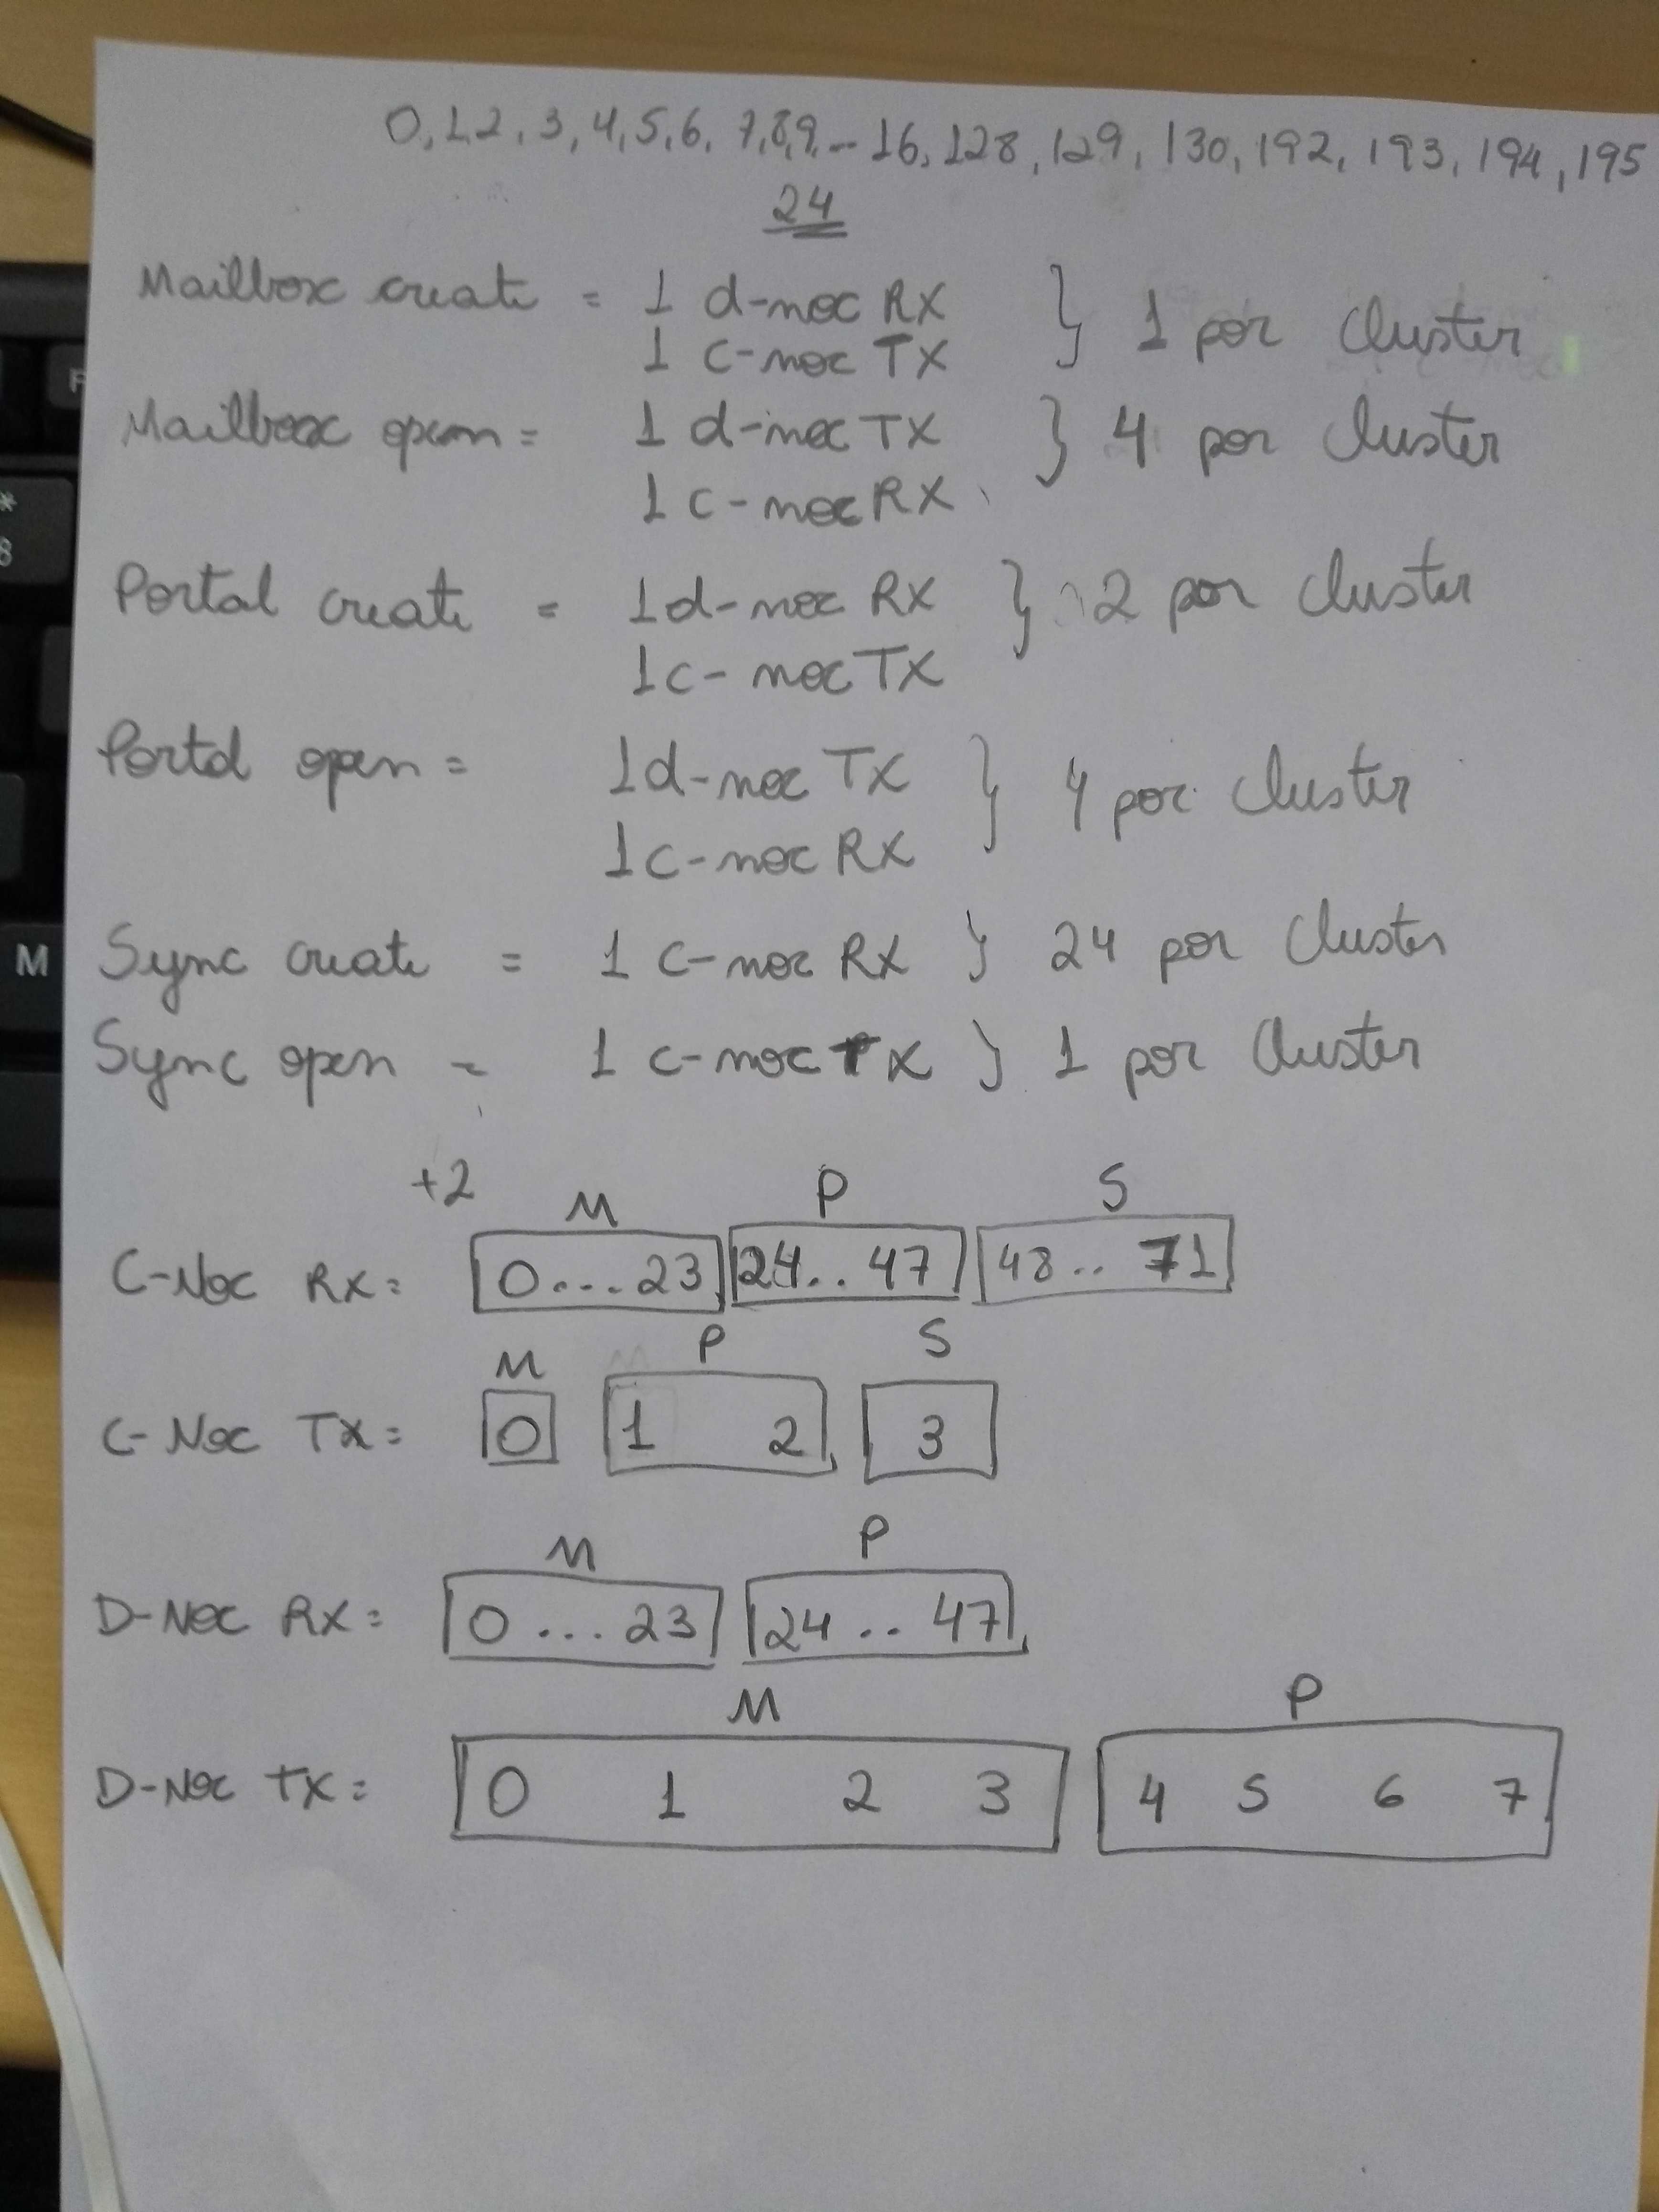 0,1,2,3,4,5,6,7,8,9,--16,128,129,130,192,193,194,195
24
Mailbox create = 1 d-noc RX } 1 por cluster
1 c-noc TX
Mailbox open = 1 d-noc TX } 4 por cluster
1 c-noc RX
Portal create = 1 d-noc RX } 2 por cluster
1 c-noc TX
Portal open = 1 d-noc TX } 4 por cluster
1 c-noc RX
Sync create = 1 c-noc RX } 24 por cluster
Sync open = 1 c-noc TX } 1 por cluster
+2 M P S
C-Noc RX = 0...23 24..47 48..71
M P S
C-Noc TX = 0 1 2 3
M P
D-Noc RX = 0...23 24..47
M P
D-Noc TX = 0 1 2 3 4 5 6 7
M